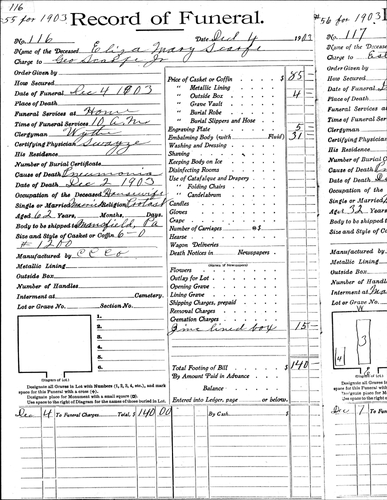 116
55 for 1903
Record of Funeral.
No. 116 Date Dec 4 1903
Name of the Deceased Eliza Mary Scarfe
Charge to Geo Scarfe Jr
Order Given by
How Secured
Date of Funeral Dec 4 1903
Place of Death
Funeral Services at Home
Time of Funeral Services 10 a.m.
Clergyman Wythe
Certifying Physician Swayze
His Residence
Number of Burial Certificate
Cause of Death Pneumonia
Date of Death Dec 2 1903
Occupation of the Deceased Housewife
Single or Married Married Religion Protest
Aged 62 Years, Months, Days.
Body to be shipped to Mansfield, Pa
Size and Style of Casket or Coffin 6-0
# 1200
Manufactured by C C Co
Metallic Lining
Outside Box
Number of Handles
Interment at Cemetery.
Lot or Grave No. Section No.
1.
2.
3.
4.
5.
6.
(Diagram of Lot.)
Designate all Graves in Lot with Numbers (1, 2, 3, 4, etc.), and mark
space for this Funeral with a some (●).
Designate place for Monument with a small square (□).
Use space to the right of Diagram for the names of those buried in Lot.
Price of Casket or Coffin $ 85 -
" Metallic Lining
" Outside Box 4 -
" Grave Vault
" Burial Robe
" Burial Slippers and Hose
Engraving Plate 5
Embalming Body (with Fluid) 31
Washing and Dressing
Shaving
Keeping Body on Ice
Disinfecting Rooms
Use of Catafalque and Drapery
" Folding Chairs
" Candelabrum
Candles
Gloves
Crape
Number of Carriages @ $
Hearse
Wagon Deliveries
Death Notices in Newspapers
(Names of Newspapers)
Flowers
Outlay for Lot
Opening Grave
Lining Grave
Shipping Charges, prepaid
Removal Charges
Cremation Charges
Zinc lined box 15 -
Total Footing of Bill $ 140 -
By Amount Paid in Advance
Balance
Entered into Ledger, page or below.
Dec 4 To Funeral Charges, Total, $ 140 00 By Cash $
#56 for 1903
No. 117
Name of the
Charge to
Order Given
How Secured
Date of
Place of
Funeral
Time of
Clergyman
Certifying
His Residence
Number of
Cause of
Date of
Occupation
Single or
Aged 32 Years
Body to be
Size and Style
Manufactured
Metallic
Outside
Number of
Interment at
Lot or Grave
W
4
Dec 1 To Fune